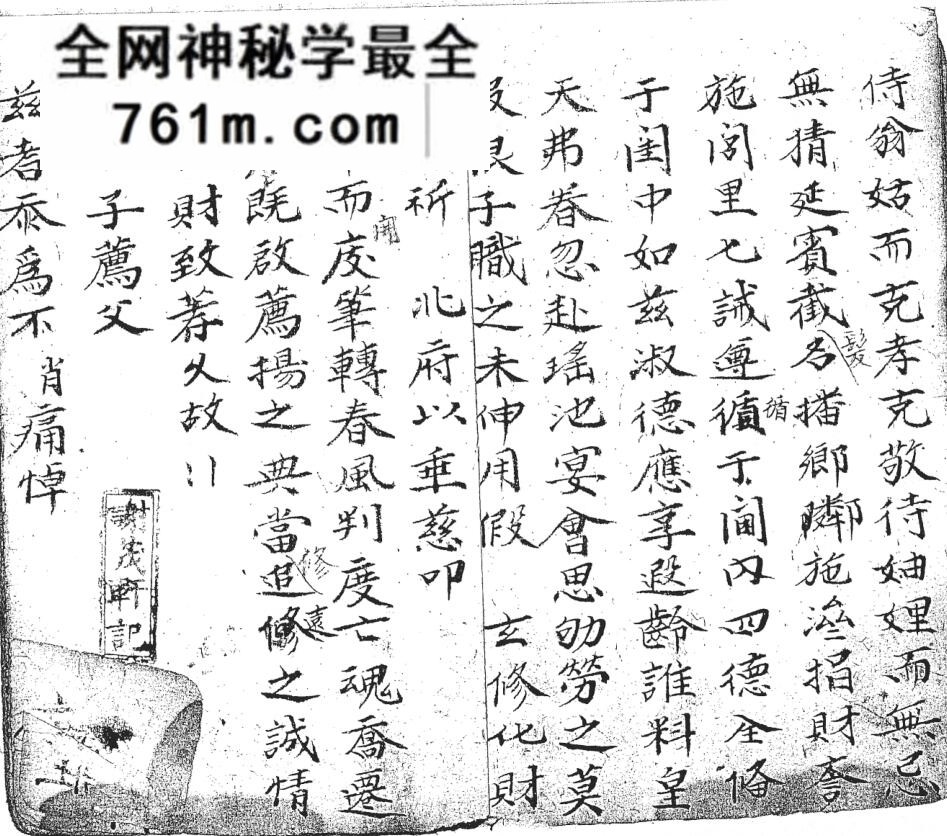 全网神秘学最全
761m.com
侍翁姑而克孝克敬待妯娌而無忌
無猜延賓截名描鄉鄰施捐財
髮
施閭里七誡遵循于閫內四德全備
循
于閨中如茲淑德應享遐齡誰料皇
天弗眷忽赴瑤池宴會思劬勞之莫
子職之未伸用假 玄修化財
祈 北府以垂慈叩
而筆轉春風判度亡魂喬遷
開
既啟薦揚之典當追修之誠情
修
遠
財致荐父故
子薦父
茲者忝為不肖痛悼
謝茂軒記